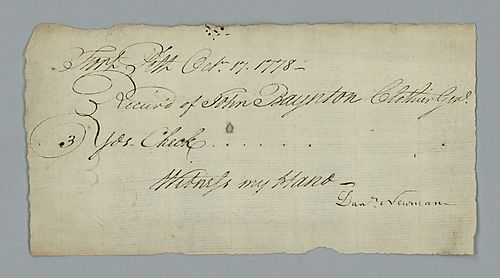 Fort Pitt Octr. 17. 1778 —
Receivd of John Baynton Clothier Genl.
3 yds. Check . . . . . . . .
Witness my Hand —
Danl. Newman